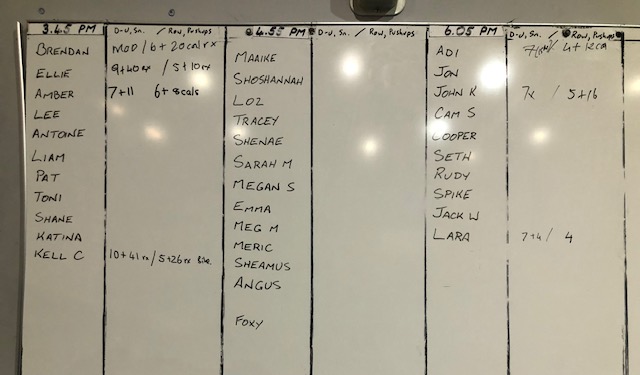 3.45 PM D-U, Sn. / Row, Pushups
BRENDAN MOD / 6 + 20 cal rx
ELLIE 9+40 rx / 5+10 rx
AMBER 7+11 6+8cals
LEE
ANTOINE
LIAM
PAT
TONI
SHANE
KATINA
KELL C 10+41 rx / 5+26 rx
4.55 PM D-U, Sn. / Row, Pushups
MAAIKE
SHOSHANNAH
LOZ
TRACEY
SHENAE
SARAH M
MEGAN S
EMMA
MEG M
MERIC
SHEAMUS
ANGUS
FOXY
6.05 PM D-U, Sn. / Row, Pushups
ADI
JON
JOHN K 7x / 5+16
CAM S
COOPER
SETH
RUDY
SPIKE
JACK W
LARA 7+4 / 4